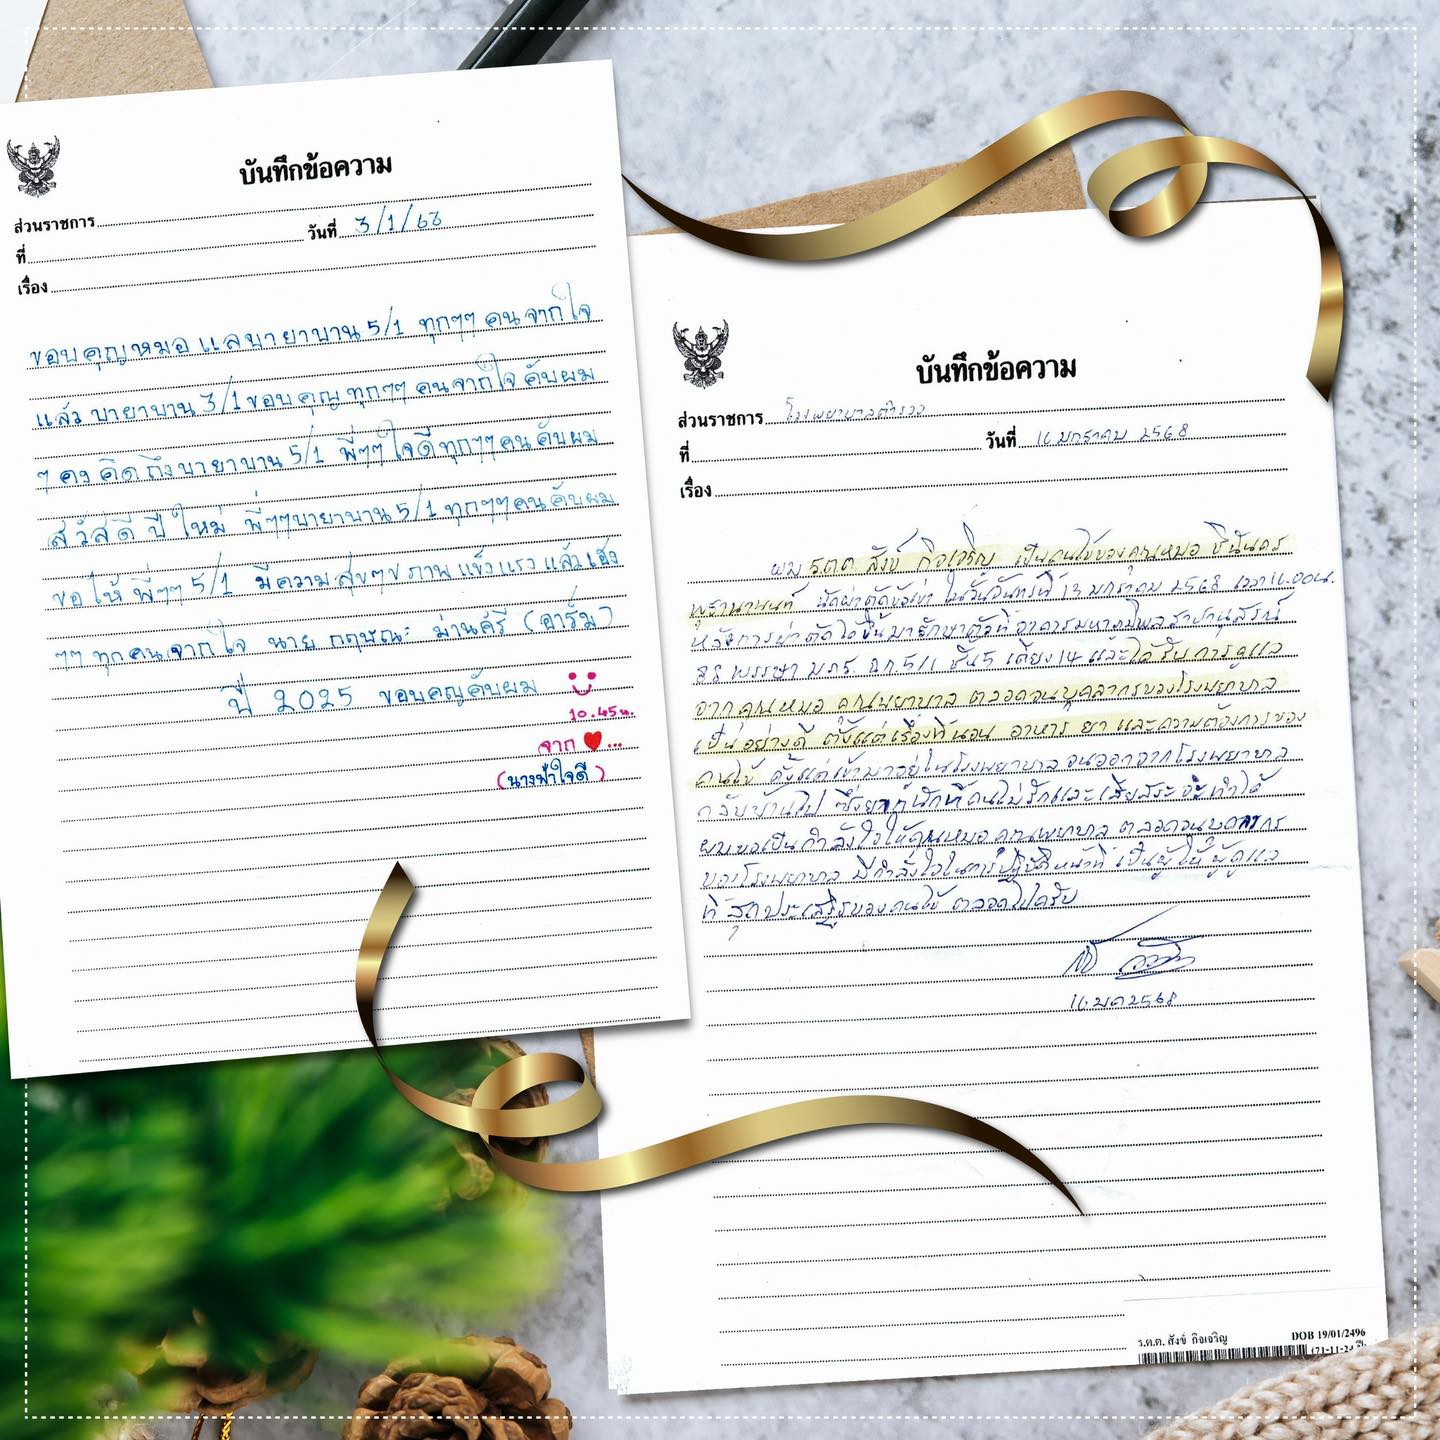 บันทึกข้อความ
ส่วนราชการ
ที่ วันที่ 3/1/68
เรื่อง
ขอบคุญหมอ แลบายาบาน 5/1 ทุกๆๆ คน จากใจ
แล้ว บายาบาน 3/1 ขอบคุญ ทุกๆๆ คน จากใจ คับผม
ๆ คง คิด ถึง บายาบาน 5/1 พี่ๆๆ ใจดี ทุกๆๆ คน คับผม
สวัสดี ปี ใหม่ พี่ๆๆ บายาบาน 5/1 ทุกๆๆ คน คับผม
ขอ ให้ พี่ๆๆ 5/1 มีความ สุขๆ ภาพ แข็ง แรง แล้ว เฮง
ๆๆ ทุก คน จาก ใจ นาย กฤษณะ ม่านศรี (อาร์ม)
ปี 2025 ขอบคุญคับผม
10.45น.
จาก ❤...
(นางฟ้าใจดี)
บันทึกข้อความ
ส่วนราชการ โรงพยาบาลตำรวจ
ที่ วันที่ 16 มกราคม 2568
เรื่อง
ผม ร.ต.ต สังข์ กิจเจริญ เป็นคนไข้ของคุณหมอ ชินันดร
นัดผ่าตัดข้อเข่า ในวันจันทร์ที่ 13 มกราคม 2568 เวลา 16.00น.
หลังการผ่าตัด ได้ขึ้นมารักษาตัวที่ อาคารมหาภูมิพลราชานุสรณ์
88 พรรษา มภร. ฉก.5/1 ชั้น5 เตียง 14 และได้รับ การดูแล
จากคุณหมอ คุณพยาบาล ตลอดจนบุคลากรของโรงพยาบาล
เป็นอย่างดี ตั้งแต่เรื่องที่นอน อาหาร ยา และความต้องการของ
คนไข้ ตั้งแต่เข้ามาอยู่ในโรงพยาบาล จนออกจากโรงพยาบาล
กลับบ้านไป ซึ่งยากนักที่คนไม่รักและเสียสระจะทำได้
ผมขอเป็นกำลังใจให้คุณหมอ คุณพยาบาล ตลอดจนบุคลากร
ของโรงพยาบาล มีกำลังใจในการปฏิบัติหน้าที่ เป็นผู้ให้ ผู้ดูแล
ที่สุดประเสริฐของคนไข้ ตลอดไปครับ
16 มค 2568
ร.ต.ต. สังข์ กิจเจริญ DOB 19/01/2496